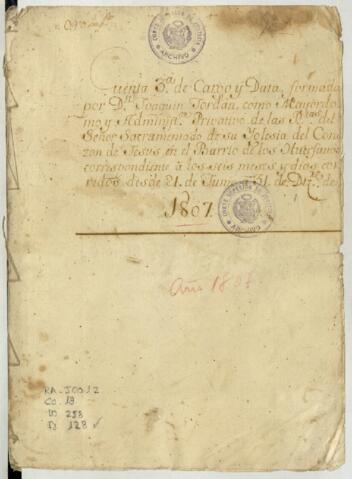 CORTE SUPERIOR DE JUSTICIA
ARCHIVO
Cuenta 3.ª de Cargo y Data, formada
por D.n Joaquin Jordan, como Mayordo-
mo y Administ.or Privativo de las R.tas del
Señor Sacramentado de su Yglesia del Cora-
zon de Jesus en el Barrio de los Huerfanos,
correspondiente á los seis meses y dias cor-
ridos desde 21 de Junio 31 de D.re de
1807
ARCHIVO
Año 1807
RA-JO012
CO. 19
D 258
D 128 ✓